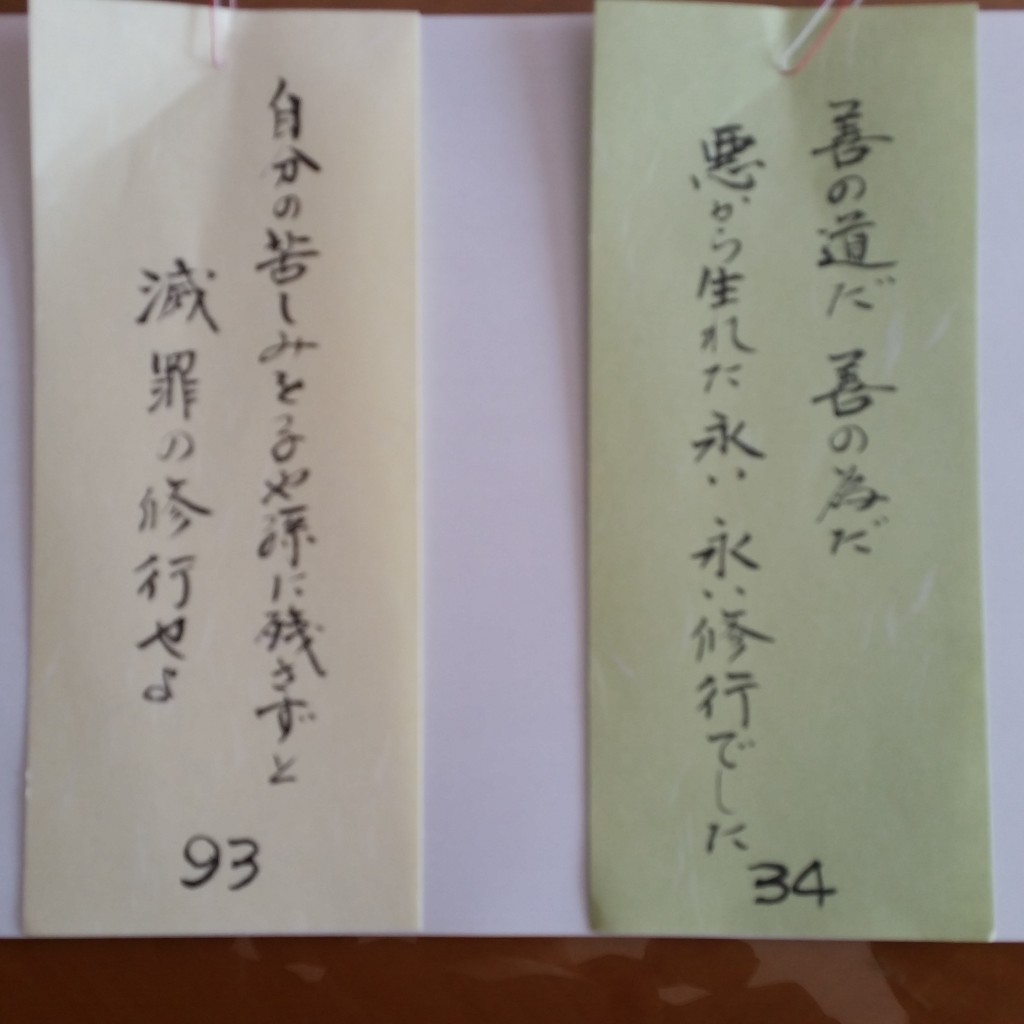 善の道だ 善の為だ
悪から生れた 永い 永い修行でした
34
自分の苦しみを子や孫に残さずと
滅罪の修行せよ
93